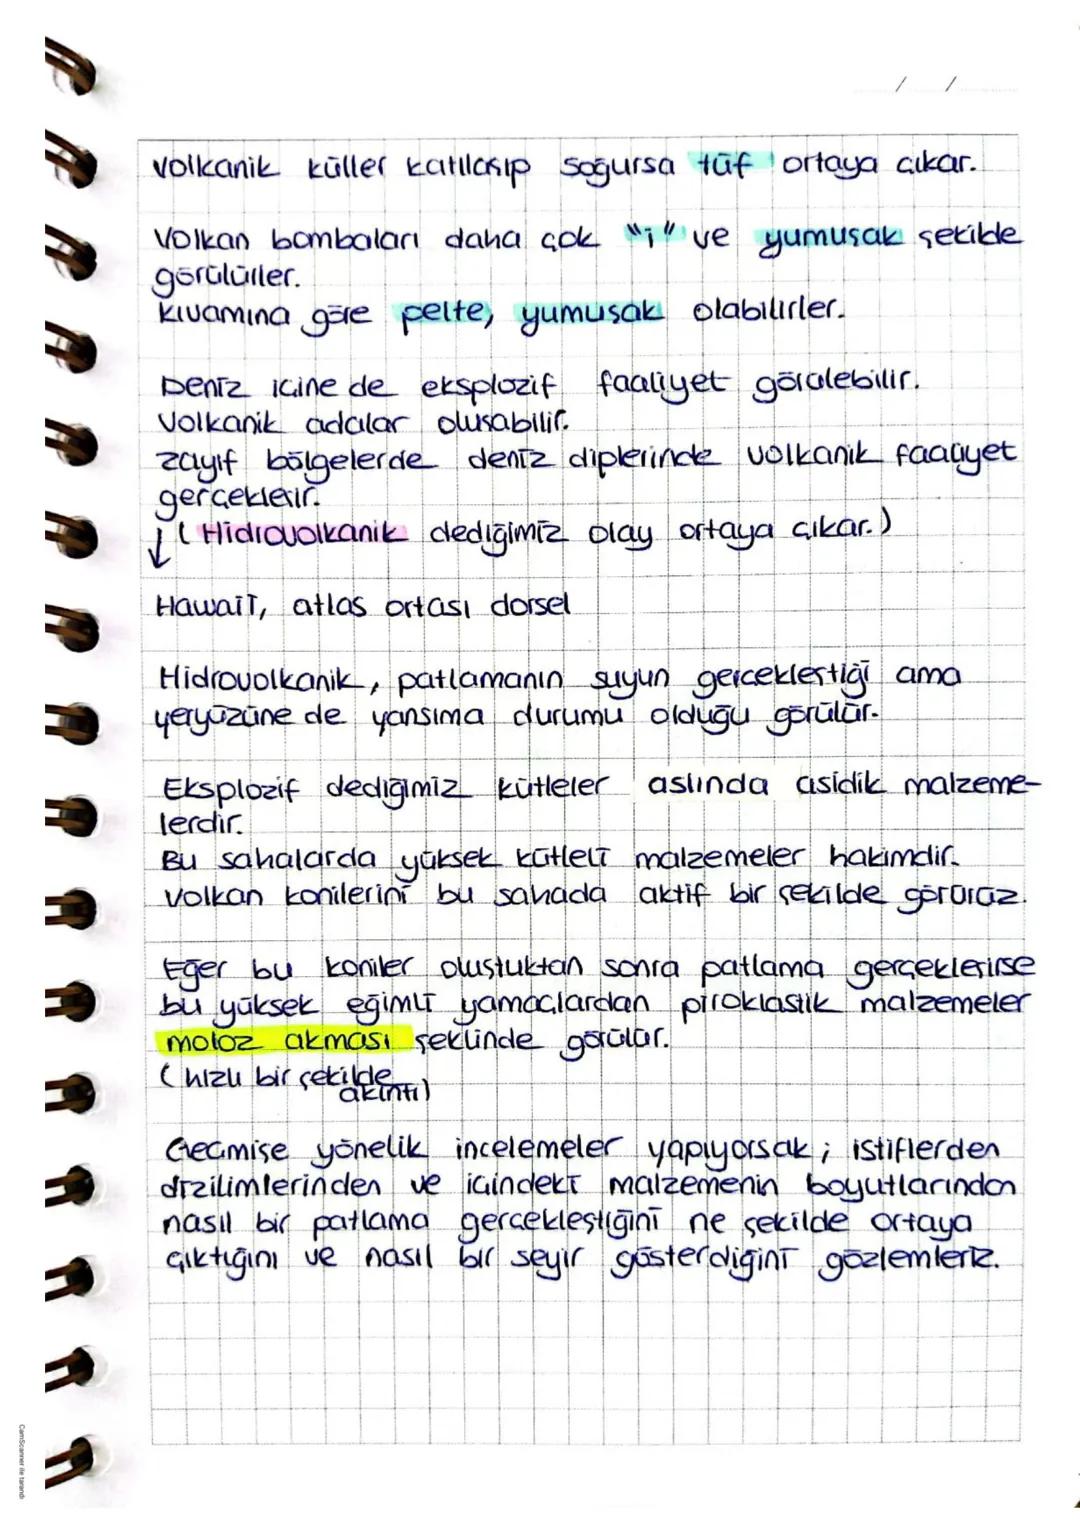 / /
Volkanik küller katılaşıp soğursa tüf ortaya çıkar.
Volkan bombaları daha çok "i" ve yumuşak şekilde
görülürler.
Kıvamına göre pelte, yumuşak olabilirler.
Deniz içine de eksplozif faaliyet görülebilir.
Volkanik adalar oluşabilir.
Zayıf bölgelerde deniz diplerinde volkanik faaliyet
gerçekleşir.
↓ (Hidrovolkanik dediğimiz olay ortaya çıkar.)
Hawaii, atlas ortası dorsel
Hidrovolkanik, patlamanın suyun gerçekleştiği ama
yeryüzüne de yansıma durumu olduğu görülür.
Eksplozif dediğimiz kütleler aslında asidik malzeme-
lerdir.
Bu sahalarda yüksek kütleli malzemeler hakimdir.
Volkan konilerini bu sahada aktif bir şekilde görürüz.
Eğer bu koniler oluştuktan sonra patlama gerçekleşirse
bu yüksek eğimli yamaçlardan piroklastik malzemeler
moloz akması şeklinde görülür.
(hızlı bir şekilde
akıntı)
Geçmişe yönelik incelemeler yapıyorsak; istiflerden
dizilimlerinden ve içindeki malzemenin boyutlarından
nasıl bir patlama gerçekleştiğini ne şekilde ortaya
çıktığını ve nasıl bir seyir gösterdiğini gözlemleriz.
CamScanner ile tarandı